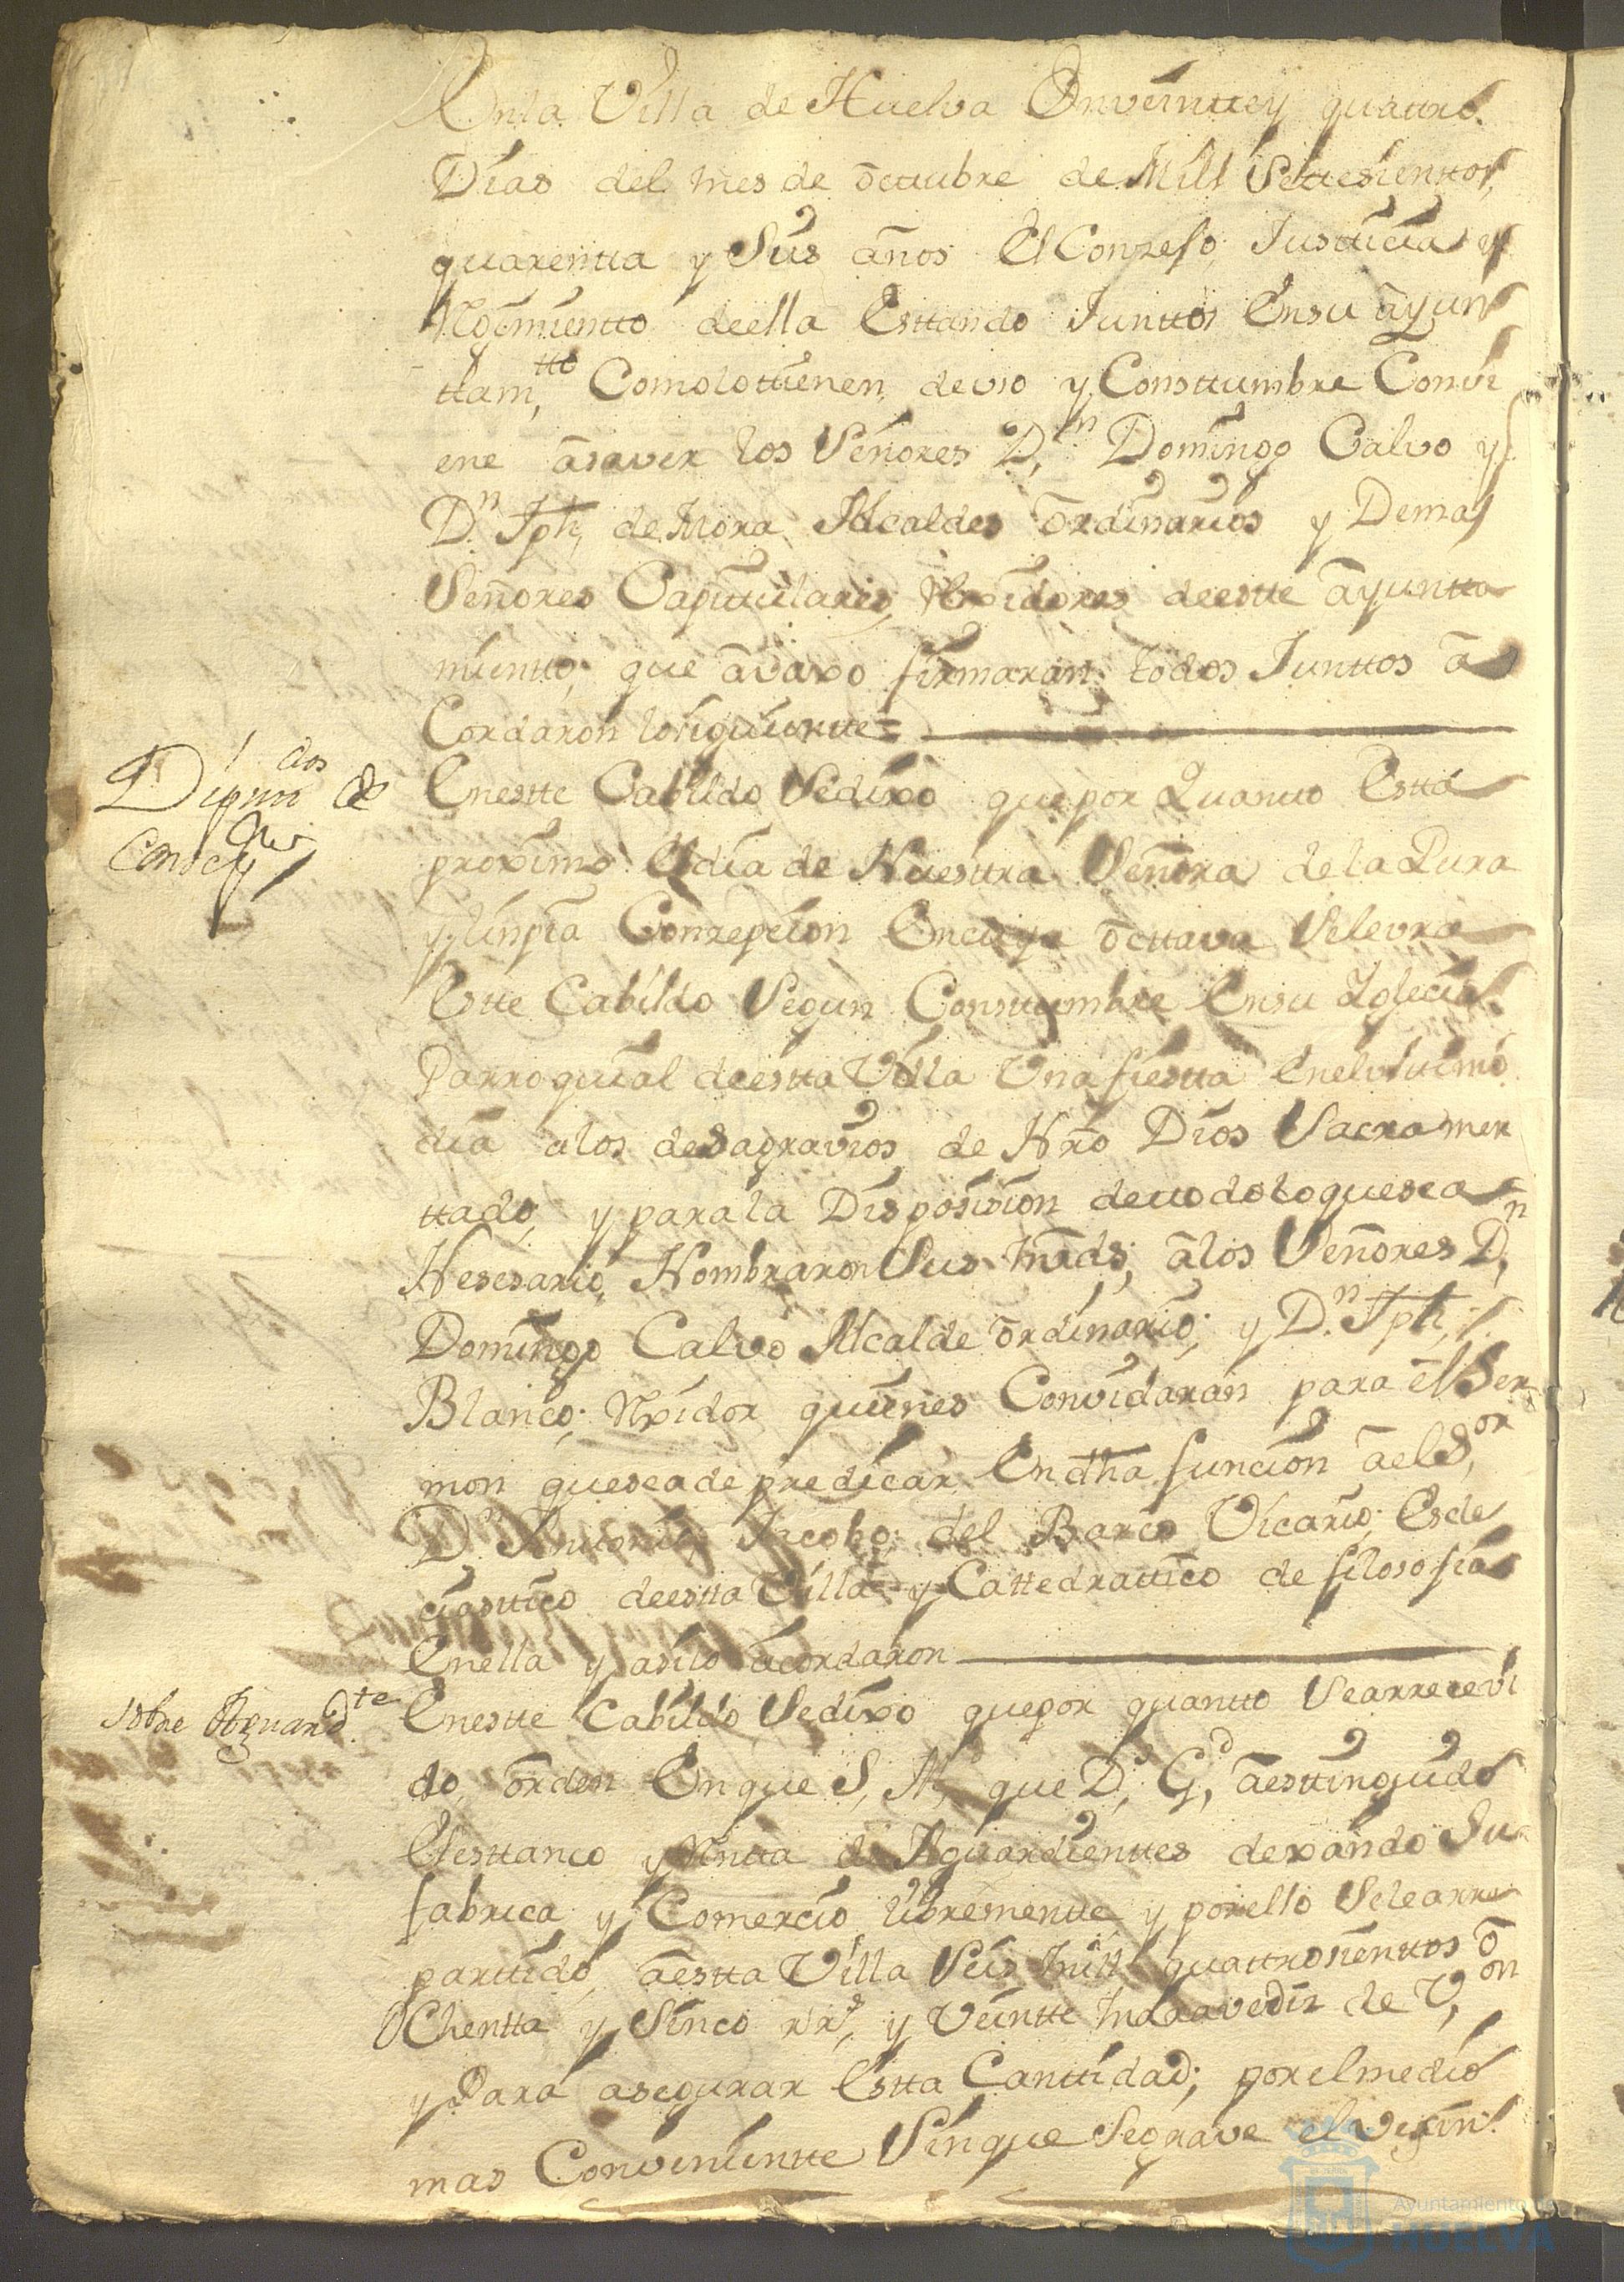 Enla Villa de Huelva Enveintey quatro
Dias del mes de octtubre de Mill Settesienttos
quarentta y Seis años El Conzejo Justticia y
Rejimientto deella Esttando Junttos Ensu ayun
ttam,tto Comolotienen, deuso y Consttumbre Convi
ene asaver los Señores D,n Domingo Calvo y
Dn Jph, de Mora Alcaldes ordinarios y Demas
Señores Capitulares, Rexidores deestte ayuntta
mientto, que avaxo firmaran todos Junttos a
Cordaron losiguientte=
Dipudos de
Concepon
Enestte Cabildo Sedixo quepor Quantto Estta
proximo Eldia de Nuesttra Señora de la Pura
y linpia Conzepcion Encuya octtava Selevra
Estte Cabildo Segun Consttumbre Ensu Yglecia
Parroquial deestta Villa Una fiestta Enelulttimo
dia alos desagravios de Nro Dios Sacramen
ttado, y parala Disposision dettodoloquesea
Nesesario, Nombraron Sus mrds; alos Señores Dn,
Domingo Calvo Alcalde ordinario; y D.n Jph,
Blanco; Rxidor quienes Convidaran para elSer
mon queseade predicar Endha funcion aelSor,
Dn Anttonio Jacobo del Barco Vicario Ecle
ciasttico deestta Villa y Cattedrattico de filosofia
Enella y asilo acordaron
sobre Aguardte.
Enestte Cabildo Sedixo quepor quantto Searrecevi
do, orden Enque S, M, que D, Gd, aesttinguido
Elesttanco y Rentta de Aguardienttes dexando Su
fabrica y Comercio libremente y porello Selearre
parttido, aestta Villa Seis mill quattrosienttos o
Chentta y Sinco rrs, y Veintte maravedis de Von,
y Para asegurar Estta Canttidad; porelmedio
mas Convenientte Sinque Segrave el vesin
Ayuntamiento de
HUELVA